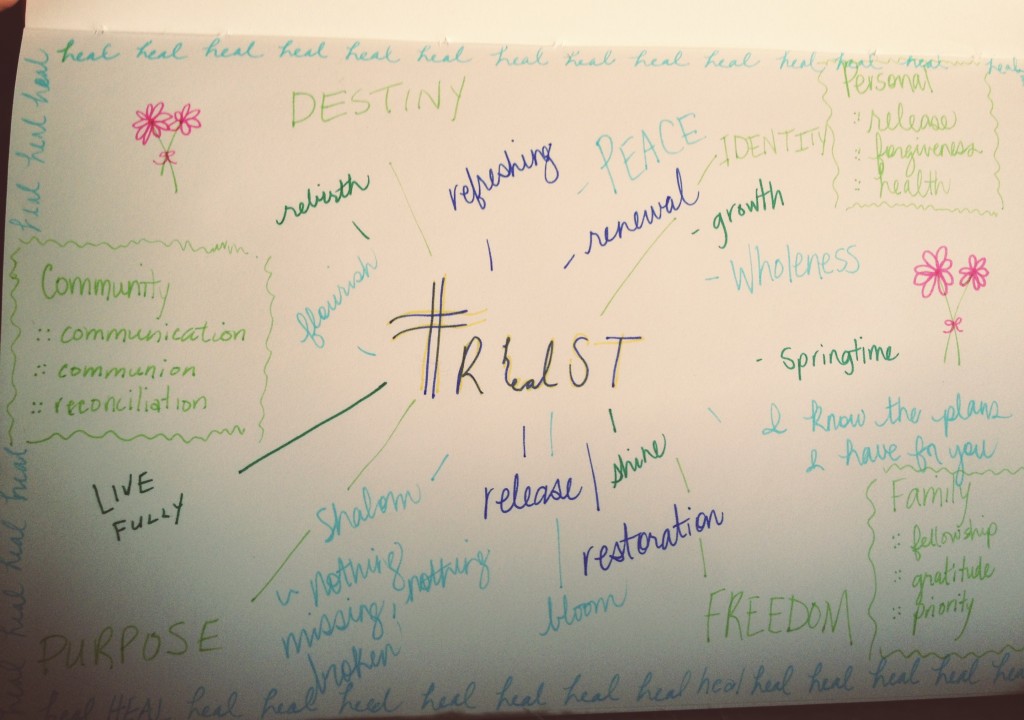 heal heal heal heal heal heal heal heal heal heal heal heal heal heal
heal heal heal
DESTINY
Personal
:: release
:: forgiveness
:: health
refreshing
- PEACE
IDENTITY
rebirth
- renewal
- growth
- Wholeness
flourish
Community
:: communication
:: communion
:: reconciliation
#RhealST
- Springtime
I know the plans
I have for you
LIVE
FULLY
Shalom
release
shine
restoration
- nothing
missing, nothing
broken
bloom
Family
:: fellowship
:: gratitude
:: priority
PURPOSE
FREEDOM
heal heal heal heal heal
heal HEAL heal heal heal heal heal heal heal heal heal heal heal heal heal heal